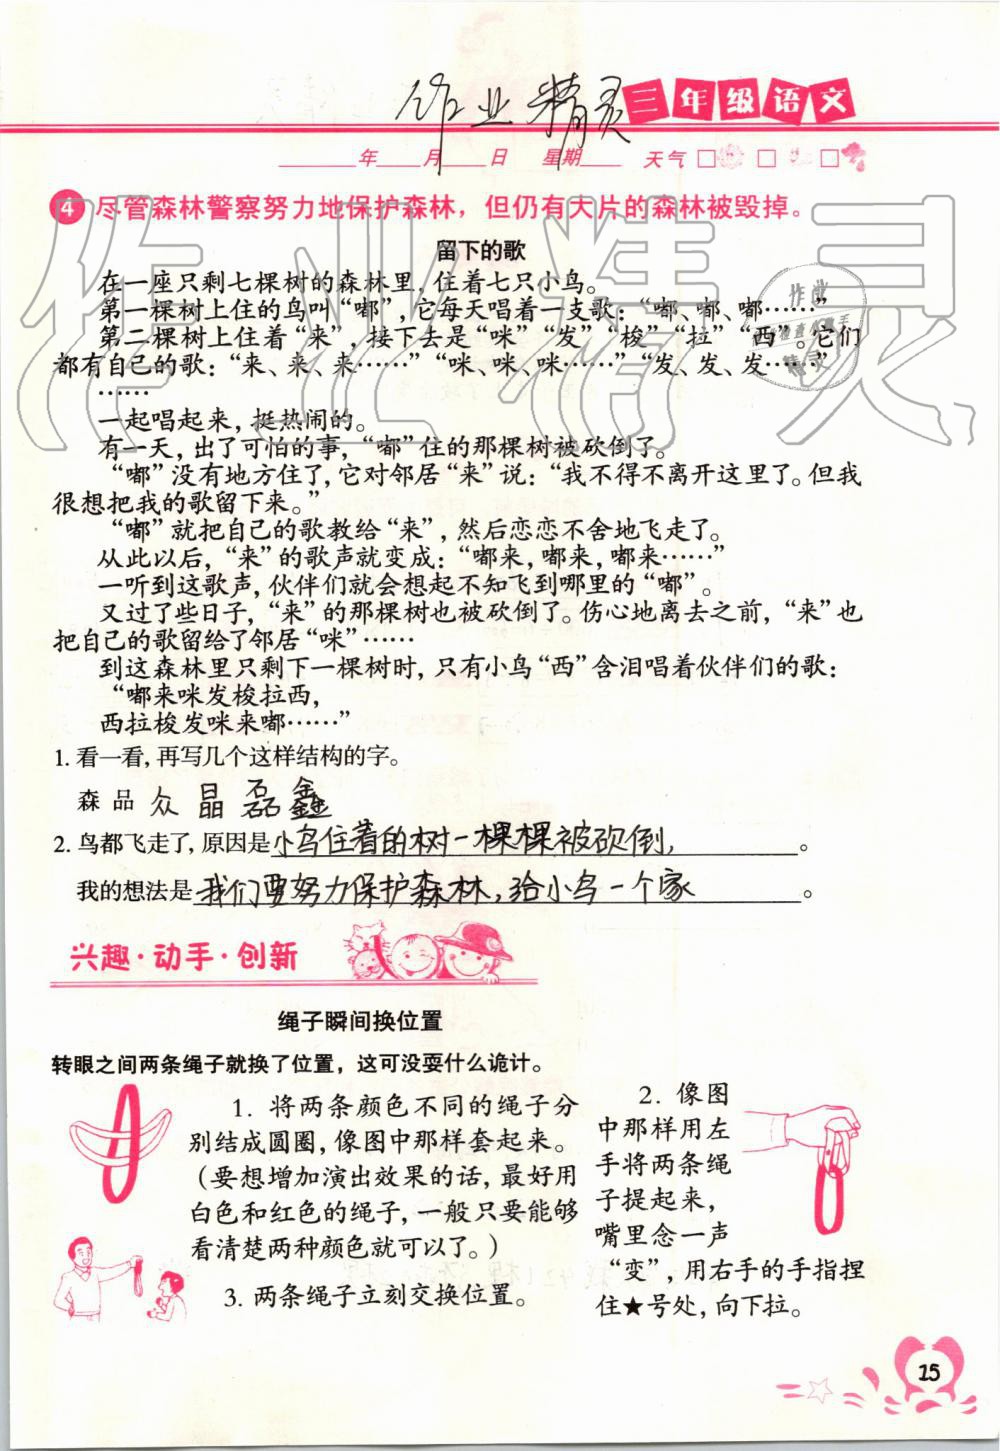 作业精灵 三年级语文
____年____月____日 星期____ 天气□ □ □
4 尽管森林警察努力地保护森林，但仍有大片的森林被毁掉。
留下的歌
在一座只剩七棵树的森林里，住着七只小鸟。
第一棵树上住的鸟叫“嘟”，它每天唱着一支歌：“嘟、嘟、嘟……”
第二棵树上住着“来”，接下去是“咪”“发”“梭”“拉”“西”。它们
都有自己的歌：“来、来、来……”“咪、咪、咪……”“发、发、发……”
……
一起唱起来，挺热闹的。
有一天，出了可怕的事，“嘟”住的那棵树被砍倒了。
“嘟”没有地方住了，它对邻居“来”说：“我不得不离开这里了。但我
很想把我的歌留下来。”
“嘟”就把自己的歌教给“来”，然后恋恋不舍地飞走了。
从此以后，“来”的歌声就变成：“嘟来，嘟来，嘟来……”
一听到这歌声，伙伴们就会想起不知飞到哪里的“嘟”。
又过了些日子，“来”的那棵树也被砍倒了。伤心地离去之前，“来”也
把自己的歌留给了邻居“咪”……
到这森林里只剩下一棵树时，只有小鸟“西”含泪唱着伙伴们的歌：
“嘟来咪发梭拉西，
西拉梭发咪来嘟……”
1. 看一看，再写几个这样结构的字。
森 品 众 晶 磊 鑫
2. 鸟都飞走了，原因是小鸟住着的树一棵棵被砍倒，。
我的想法是我们要努力保护森林，给小鸟一个家。
兴趣·动手·创新
绳子瞬间换位置
转眼之间两条绳子就换了位置，这可没耍什么诡计。
1. 将两条颜色不同的绳子分
别结成圆圈，像图中那样套起来。
（要想增加演出效果的话，最好用
白色和红色的绳子，一般只要能够
看清楚两种颜色就可以了。）
2. 像图
中那样用左
手将两条绳
子提起来，
嘴里念一声
“变”，用右手的手指捏
住★号处，向下拉。
3. 两条绳子立刻交换位置。
15
作业精灵
作业
检查小助手
精灵